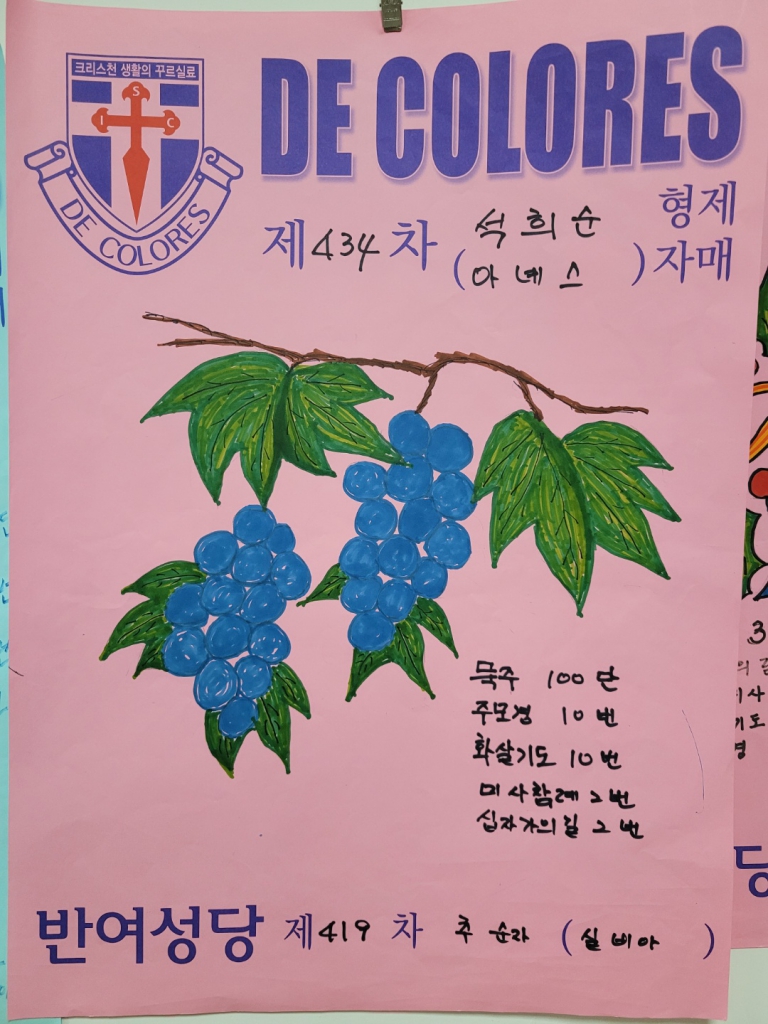 크리스천 생활의 꾸르실료
S
I C
DE COLORES
DE COLORES
제434차 (석희순 아녜스) 형제 자매
묵주 100단
주모경 10번
화살기도 10번
미사참례 2번
십자가의길 2번
반여성당 제419차 추순자 (실비아)